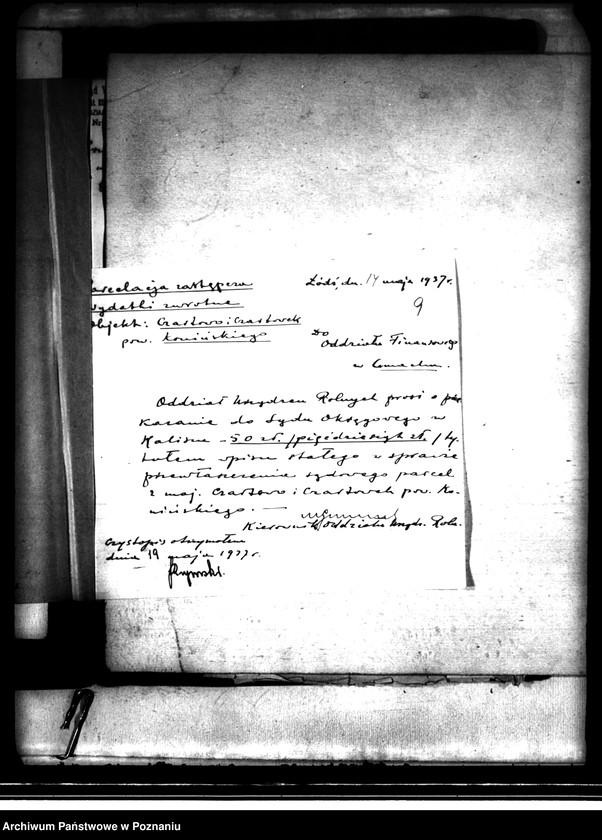 Parcelacja zastępcza
Wydatki zwrotne
Objekt: Czartowo i Czartowek
pow. Konińskiego
Łódź, dn. 14 maja 1937 r.
9
Do
Oddziału Finansowego
w
Oddział Urządzeń Rolnych prosi o prze
kazanie do Sądu Okręgowego w
Kaliszu - 50 zł. /pięćdziesiąt zł./ ty-
tułem wpisu stałego w sprawie
przewłaszczenia sądowego parcel
z maj. Czartowo i Czartowek pow. Ko-
nińskiego. —
Kierownik Oddziału Urządz. Roln.
Czystopis otrzymałem
dnia 19 maja 1937 r.
Archiwum Państwowe w Poznaniu